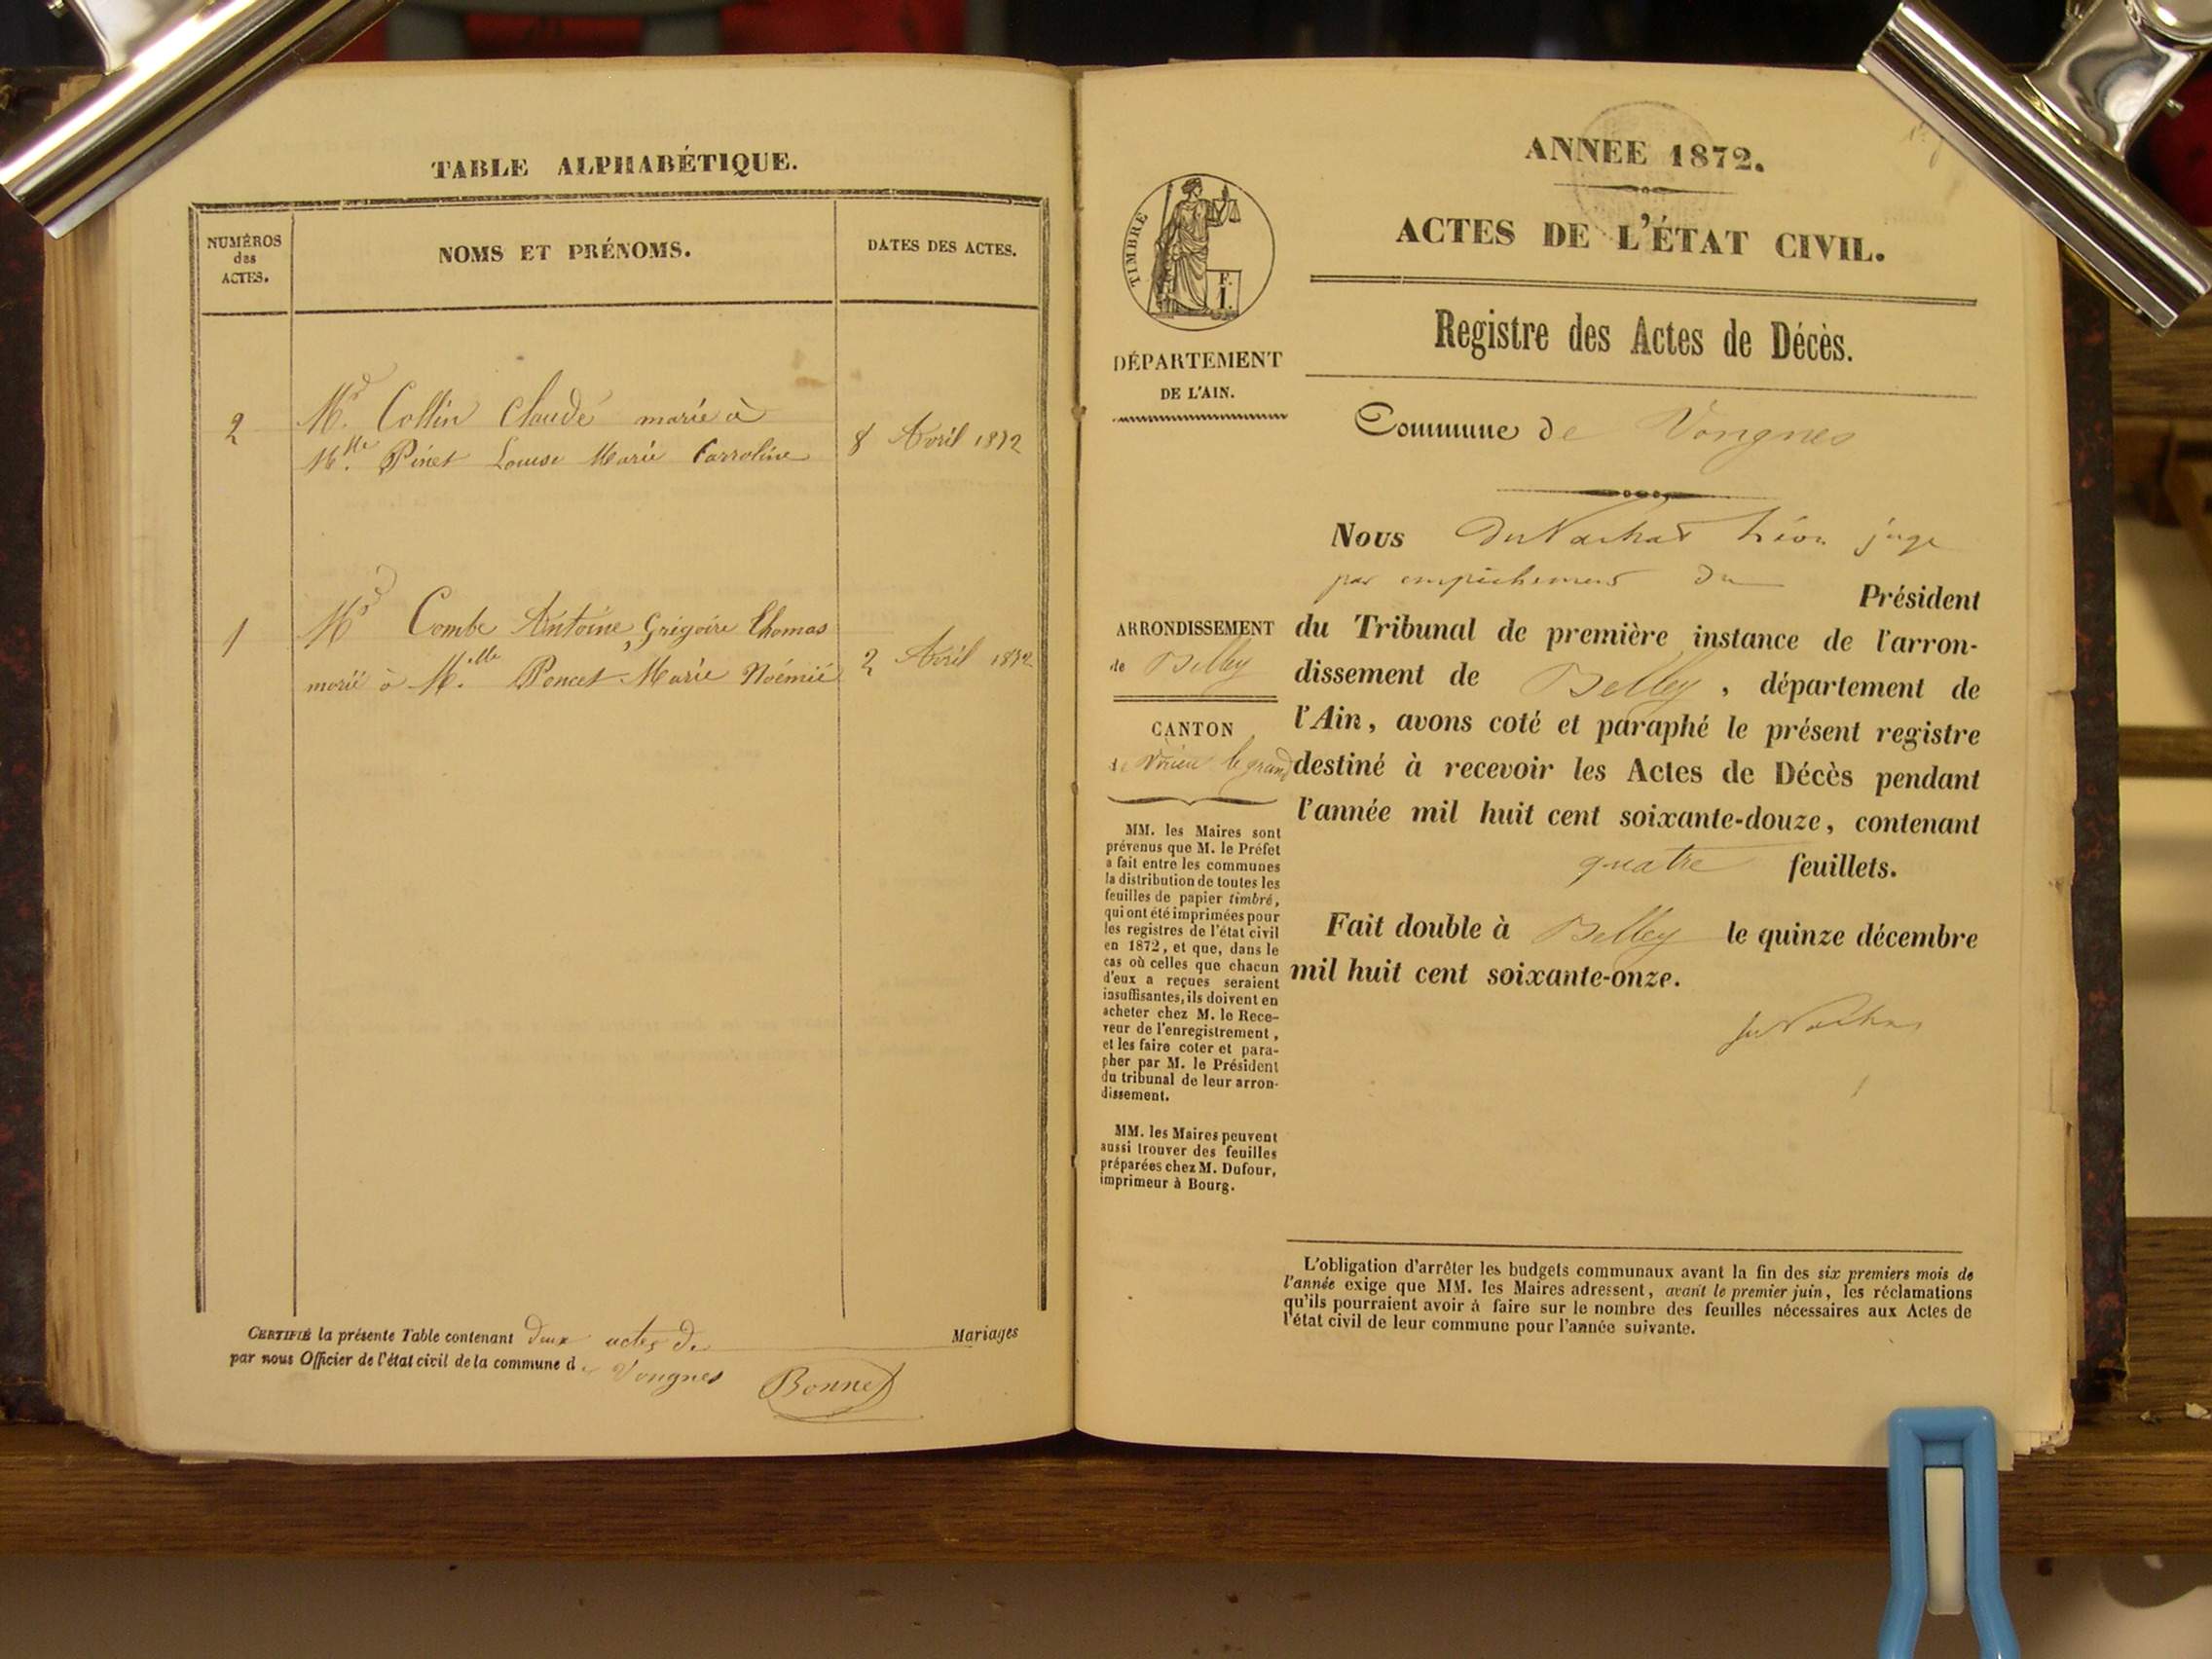 TABLE ALPHABÉTIQUE.
NUMÉROS
des
ACTES.
NOMS ET PRÉNOMS.
DATES DES ACTES.
2
Mr. Collin Claude marié à
Mlle. Pinet Louise Marie Carroline
8 Avril 1872
1
Mr Combe Antoine, Grégoire Thomas
marié à Melle. Poncet Marie Noémié
2 Avril 1872
CERTIFIÉ la présente Table contenant deux actes de Mariages
par nous Officier de l'état civil de la commune de Vongnes
Bonnet
ANNEE 1872.
ACTES DE L'ÉTAT CIVIL.
Registre des Actes de Décès.
TIMBRE
F.
I.
DÉPARTEMENT
DE L'AIN.
ARRONDISSEMENT
de Belley
CANTON
de Virieu le grand
MM. les Maires sont
prévenus que M. le Préfet
a fait entre les communes
la distribution de toutes les
feuilles de papier timbré,
qui ont été imprimées pour
les registres de l'état civil
en 1872, et que, dans le
cas où celles que chacun
d'eux a reçues seraient
insuffisantes, ils doivent en
acheter chez M. le Rece-
veur de l'enregistrement,
et les faire coter et para-
pher par M. le Président
du tribunal de leur arron-
dissement.
MM. les Maires peuvent
aussi trouver des feuilles
préparées chez M. Dufour,
imprimeur à Bourg.
Commune de Vongnes
Nous DuNachat Léon juge
par empêchement du Président
du Tribunal de première instance de l'arron-
dissement de Belley, département de
l'Ain, avons coté et paraphé le présent registre
destiné à recevoir les Actes de Décès pendant
l'année mil huit cent soixante-douze, contenant
quatre feuillets.
Fait double à Belley le quinze décembre
mil huit cent soixante-onze.
L'obligation d'arrêter les budgets communaux avant la fin des six premiers mois de
l'année exige que MM. les Maires adressent, avant le premier juin, les réclamations
qu'ils pourraient avoir à faire sur le nombre des feuilles nécessaires aux Actes de
l'état civil de leur commune pour l'année suivante.